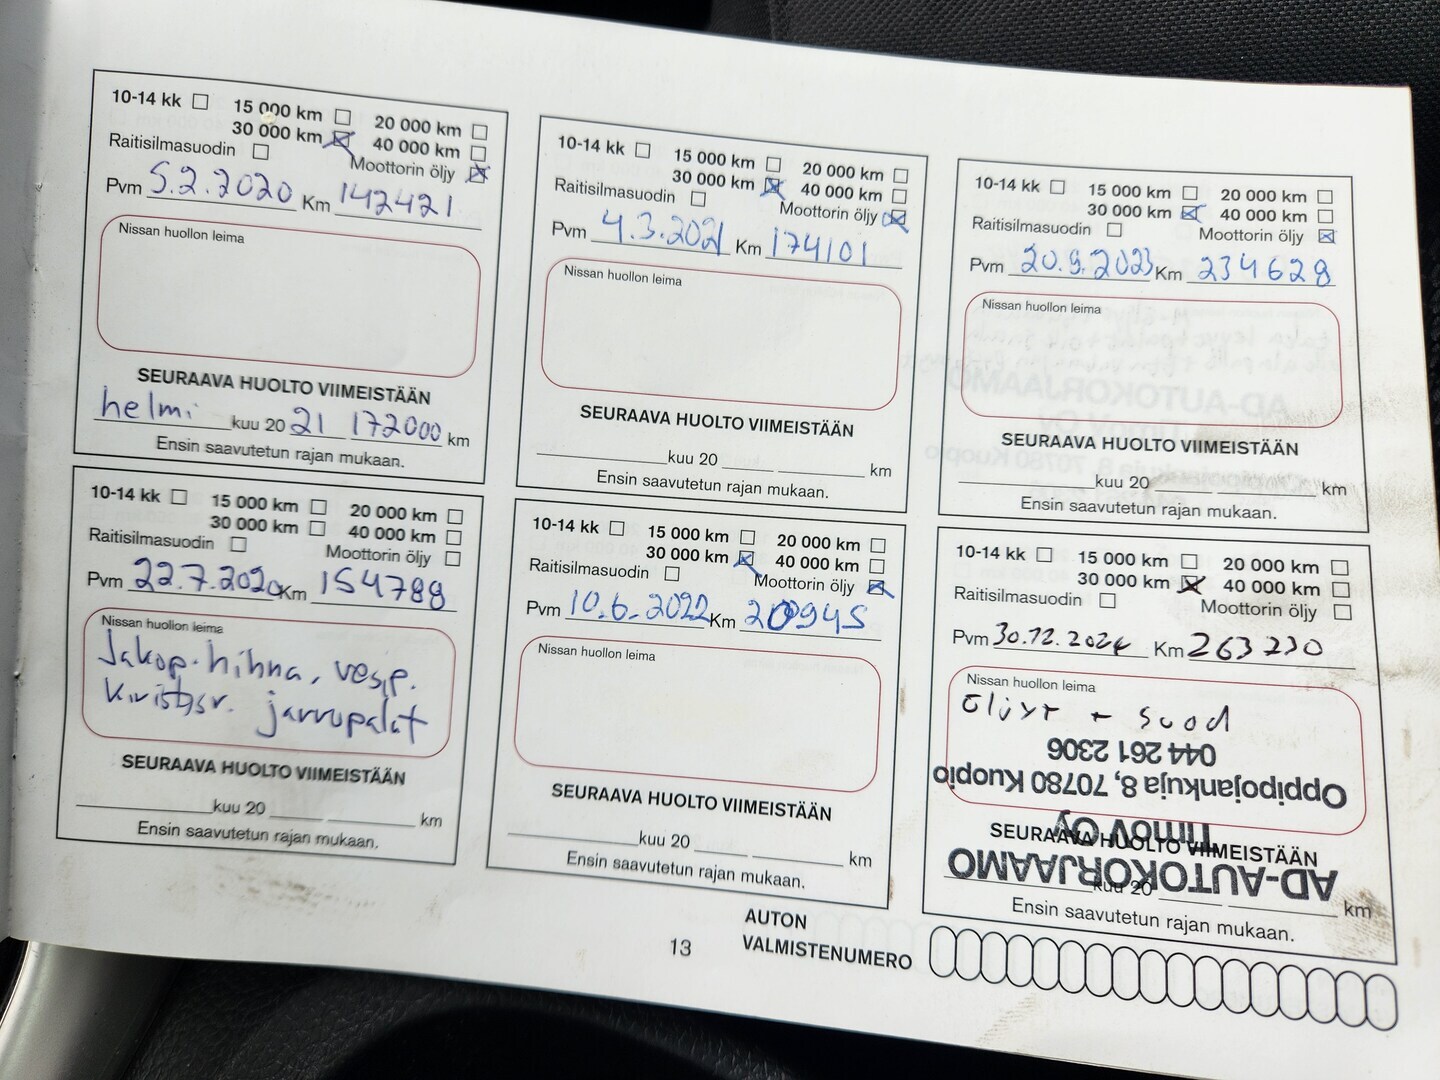 10-14 kk 15 000 km 20 000 km
30 000 km 40 000 km
Raitisilmasuodin Moottorin öljy
Pvm 5.2.2020 Km 142421
Nissan huollon leima
SEURAAVA HUOLTO VIIMEISTÄÄN
helmi kuu 20 21 172000 km
Ensin saavutetun rajan mukaan.
10-14 kk 15 000 km 20 000 km
30 000 km 40 000 km
Raitisilmasuodin Moottorin öljy
Pvm 22.7.2020 Km 154788
Nissan huollon leima
Jakop.hihna, vesip.
jarrupalat
SEURAAVA HUOLTO VIIMEISTÄÄN
kuu 20 km
Ensin saavutetun rajan mukaan.
10-14 kk 15 000 km 20 000 km
30 000 km 40 000 km
Raitisilmasuodin Moottorin öljy
Pvm 4.3.2021 Km 174101
Nissan huollon leima
SEURAAVA HUOLTO VIIMEISTÄÄN
kuu 20 km
Ensin saavutetun rajan mukaan.
10-14 kk 15 000 km 20 000 km
30 000 km 40 000 km
Raitisilmasuodin Moottorin öljy
Pvm 10.6.2022 Km 200945
Nissan huollon leima
SEURAAVA HUOLTO VIIMEISTÄÄN
kuu 20 km
Ensin saavutetun rajan mukaan.
10-14 kk 15 000 km 20 000 km
30 000 km 40 000 km
Raitisilmasuodin Moottorin öljy
Pvm 20.9.2023 Km 234628
Nissan huollon leima
SEURAAVA HUOLTO VIIMEISTÄÄN
kuu 20 km
Ensin saavutetun rajan mukaan.
10-14 kk 15 000 km 20 000 km
30 000 km 40 000 km
Raitisilmasuodin Moottorin öljy
Pvm 30.12.2024 Km 263230
Nissan huollon leima
öljyt + suod
AD-AUTOKORJAAMO
TimoV Oy
Oppipojankuja 8, 70780 Kuopio
044 261 2306
SEURAAVA HUOLTO VIIMEISTÄÄN
kuu 20 km
Ensin saavutetun rajan mukaan.
13
AUTON
VALMISTENUMERO